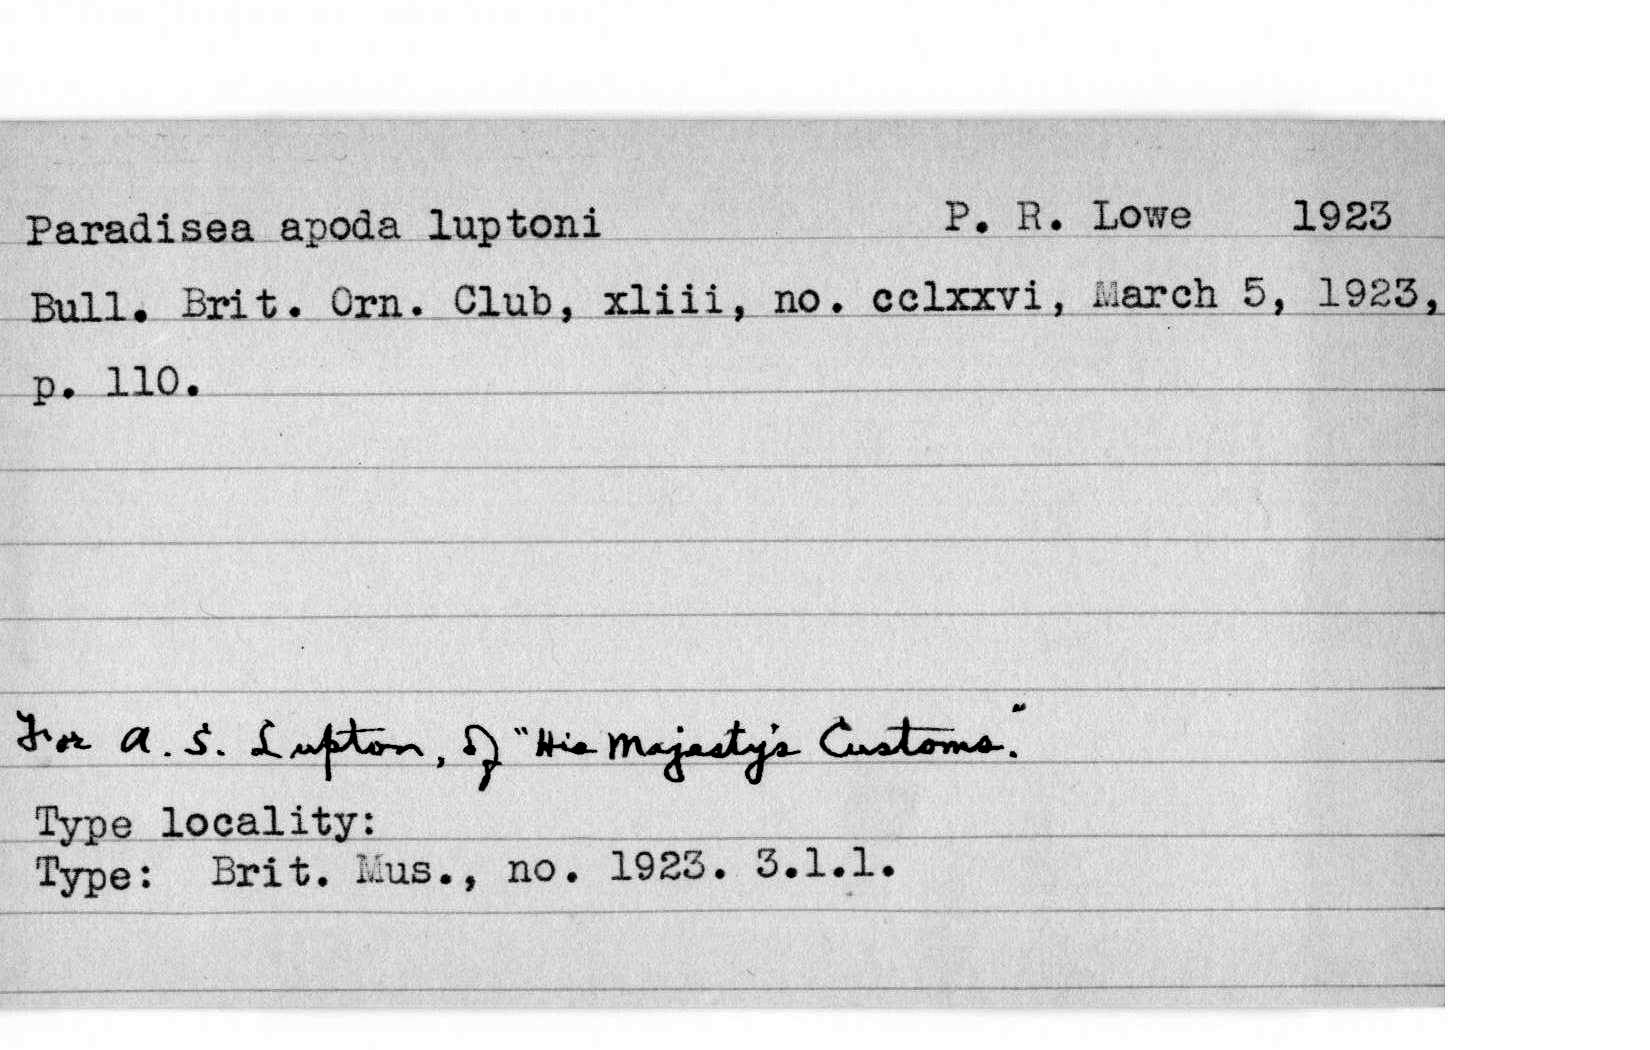 Paradisea apoda luptoni P. R. Lowe 1923
Bull. Brit. Orn. Club, xliii, no. cclxxvi, March 5, 1923,
p. 110.
For A. S. Lupton, of "His Majesty's Customs."
Type locality:
Type: Brit. Mus., no. 1923. 3.1.1.